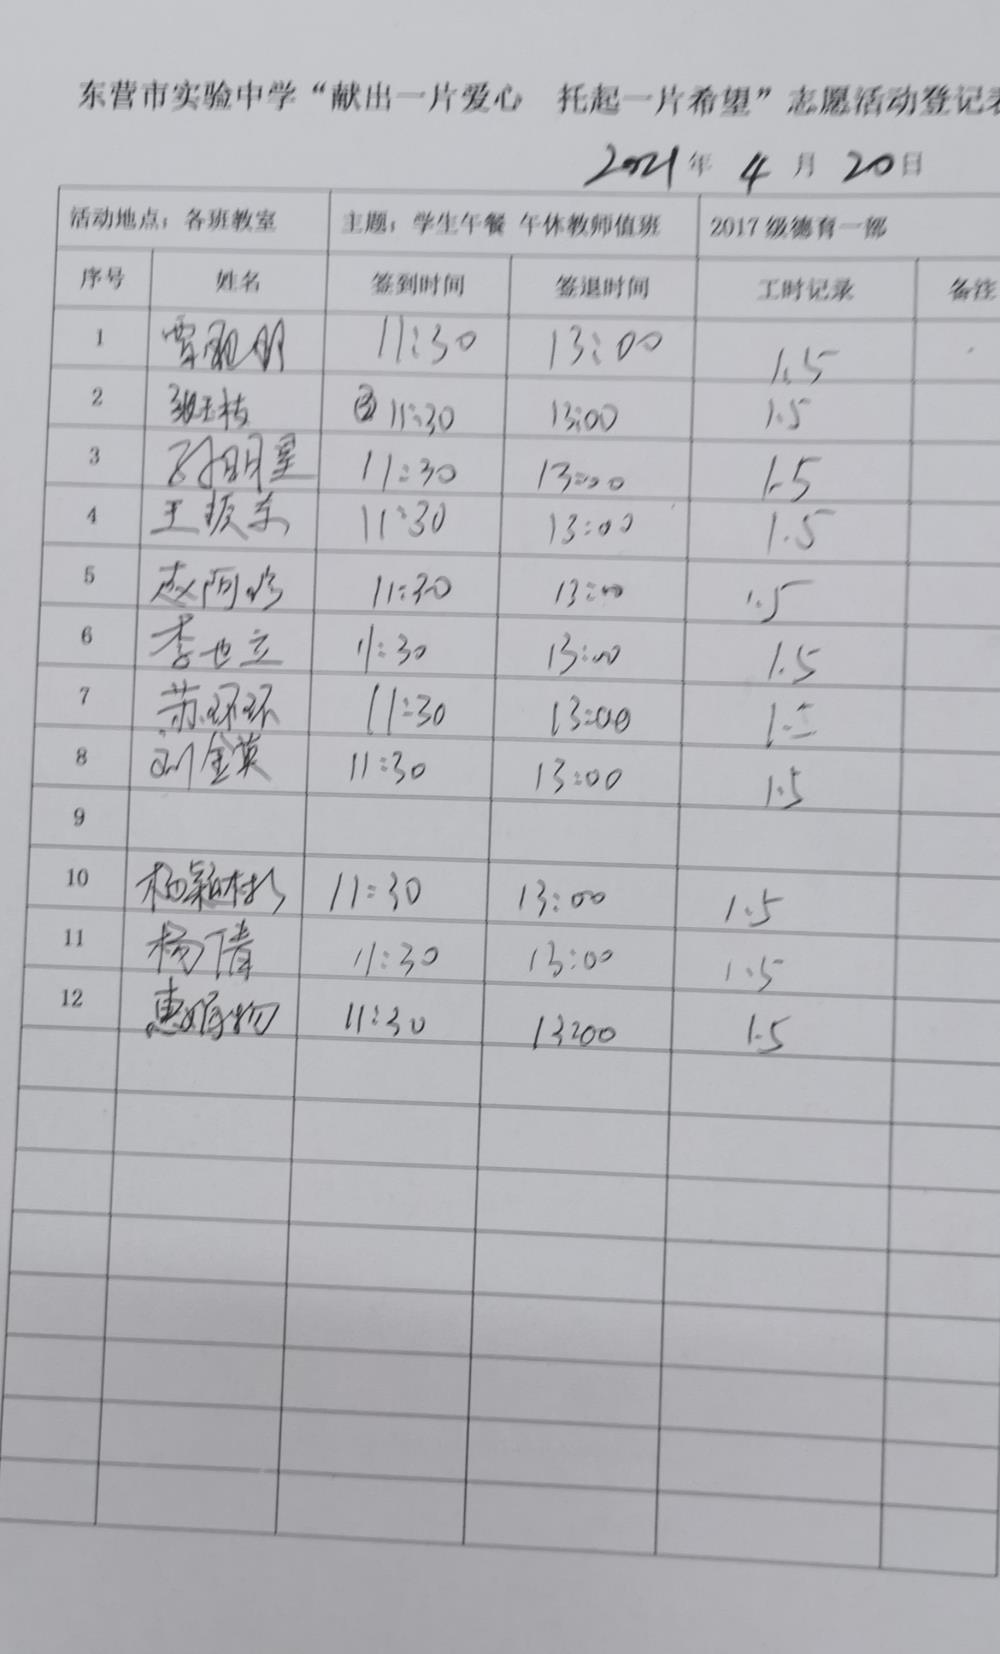 东营市实验中学“献出一片爱心 托起一片希望”志愿活动登记表
2021年 4 月 20日
活动地点：各班教室 主题：学生午餐 午休教师值班 2017级德育一部
序号 姓名 签到时间 签退时间 工时记录 备注
1 11:30 13:00 1.5
2 11:30 13:00 1.5
3 孙明星 11:30 13:00 1.5
4 王振东 11:30 13:00 1.5
5 赵阿 11:30 13:00 1.5
6 李世立 11:30 13:00 1.5
7 苏环环 11:30 13:00 1.5
8 刘金英 11:30 13:00 1.5
9
10 杨颖彬 11:30 13:00 1.5
11 杨倩 11:30 13:00 1.5
12 11:30 13:00 1.5